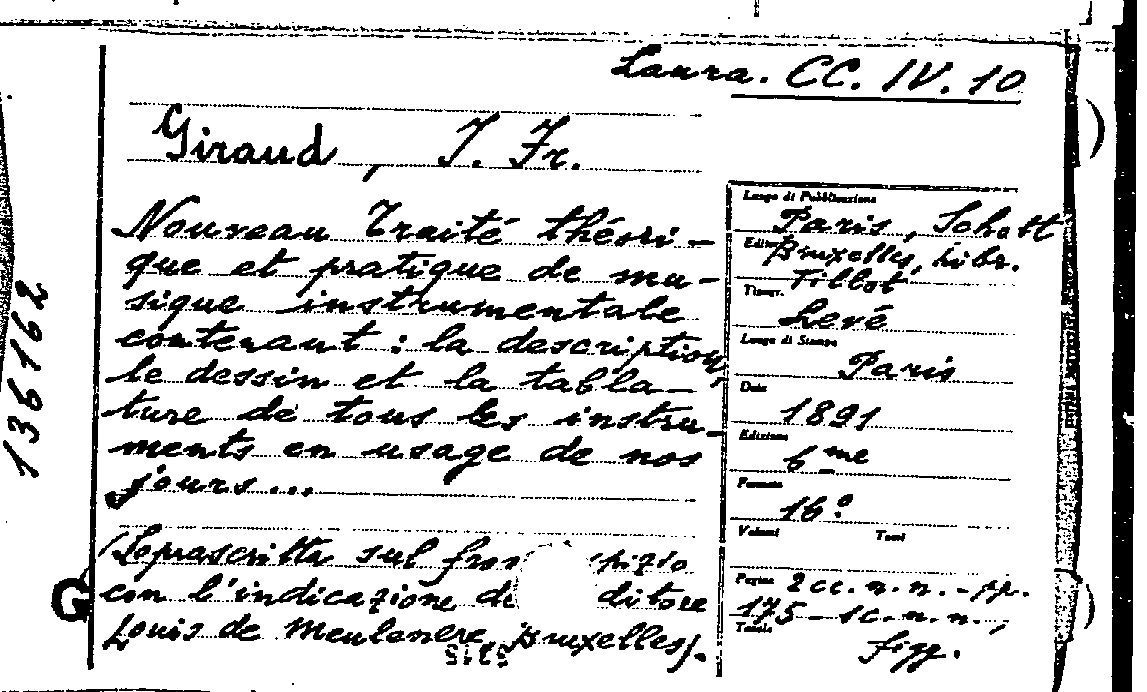 Laura. CC. IV. 10
Giraud, J. Fr.
Nouveau Traité théori-
que et pratique de mu-
sique instrumentale
contenant : la description,
le dessin et la tabla-
ture de tous les instru-
ments en usage de nos
jours...
(Soprascritta sul fron pizio
con l'indicazione de ditore
Louis de Meulenere, Bruxelles).
Luogo di Pubblicazione
Paris, Schott
Bruxelles, libr.
Tillot
Levé
Luogo di Stampa
Paris
Data
1891
Edizione
6me
Formato
16º
Volumi Tomi
Pagine 2 cc. n. n. - pp.
175 - 1 c. n. n.,
Tavole
figg.
136162
G